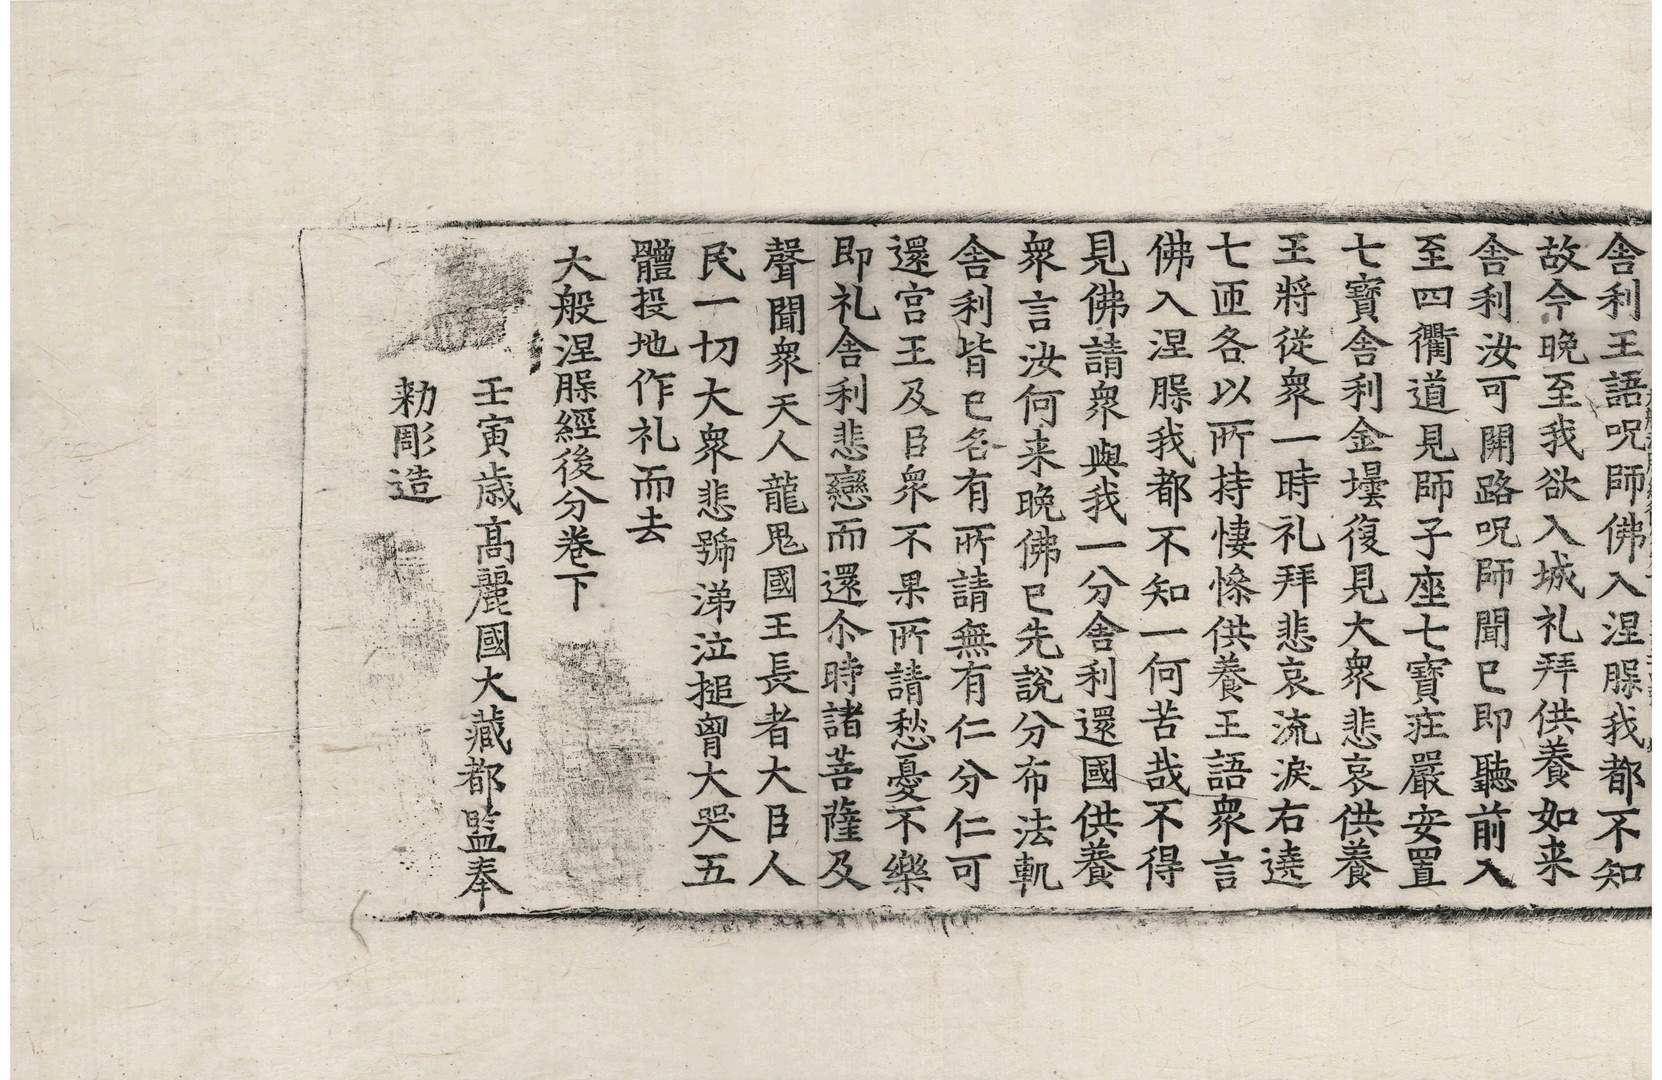 舍利王語呪師佛入涅槃我都不知
故今晚至我欲入城礼拜供養如来
舍利汝可開路呪師聞已即聽前入
至四衢道見師子座七寶莊嚴安置
七寶舍利金壜復見大衆悲哀供養
王將從衆一時礼拜悲哀流淚右遶
七匝各以所持悽慘供養王語衆言
佛入涅槃我都不知一何苦哉不得
見佛請衆與我一分舍利還國供養
衆言汝何来晚佛已先說分布法軌
舍利皆已各有所請無有仁分仁可
還宮王及臣衆不果所請愁憂不樂
即礼舍利悲戀而還尒時諸菩薩及
聲聞衆天人龍鬼國王長者大臣人
民一切大衆悲號涕泣搥胷大哭五
體投地作礼而去
大般涅槃經後分卷下
壬寅歳高麗國大藏都監奉
勅彫造